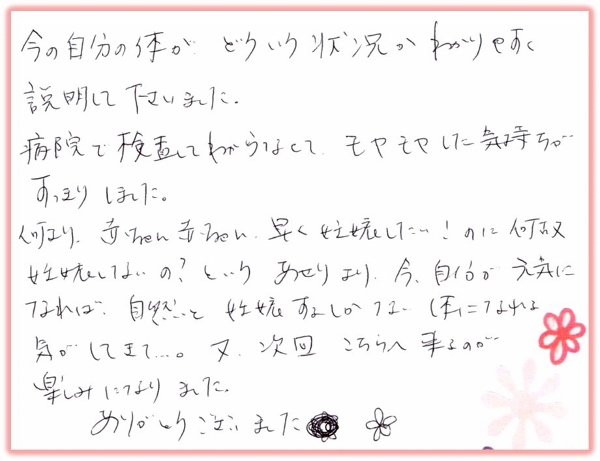 今の自分の体が どういう状況か わかりやすく
説明して下さいました。
病院で検査してわからなくて、モヤモヤした気持ちが
すっきりしました。
何より、赤ちゃん赤ちゃん、早く妊娠したい!のに何故
妊娠しないの?という あせりより、今、自分が 元気に
なれば、自然と 妊娠するしかない 体になれる
気がしてきて…。又、次回 こちらへ 来るのが
楽しみになりました。
ありがとうございました